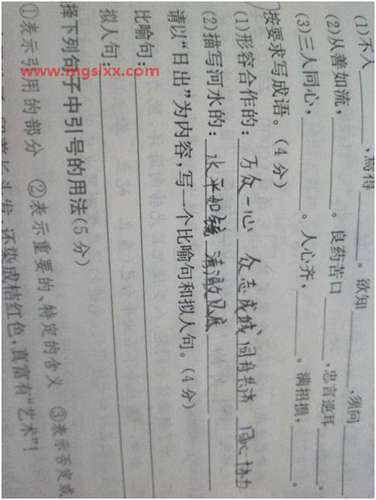 (1)不入______,焉得______。欲知______,须问______
(2)从善如流,______。良药苦口______,忠言逆耳______。
(3)三人同心,______。人心齐,______。满招损,______。
按要求写成语。(4分)
(1)形容合作的:万众一心 众志成城 同舟共济 同心协力
(2)描写河水的:水平如镜 清澈见底
请以“日出”为内容,写一个比喻句和拟人句。(4分)
比喻句:
拟人句:
择下列句子中引号的用法(5分)
①表示引用的部分 ②表示重要的、特定的含义 ③表示否定或
着长头发,还染成桔红色,真富有“艺术”!
www.mgsixx.com